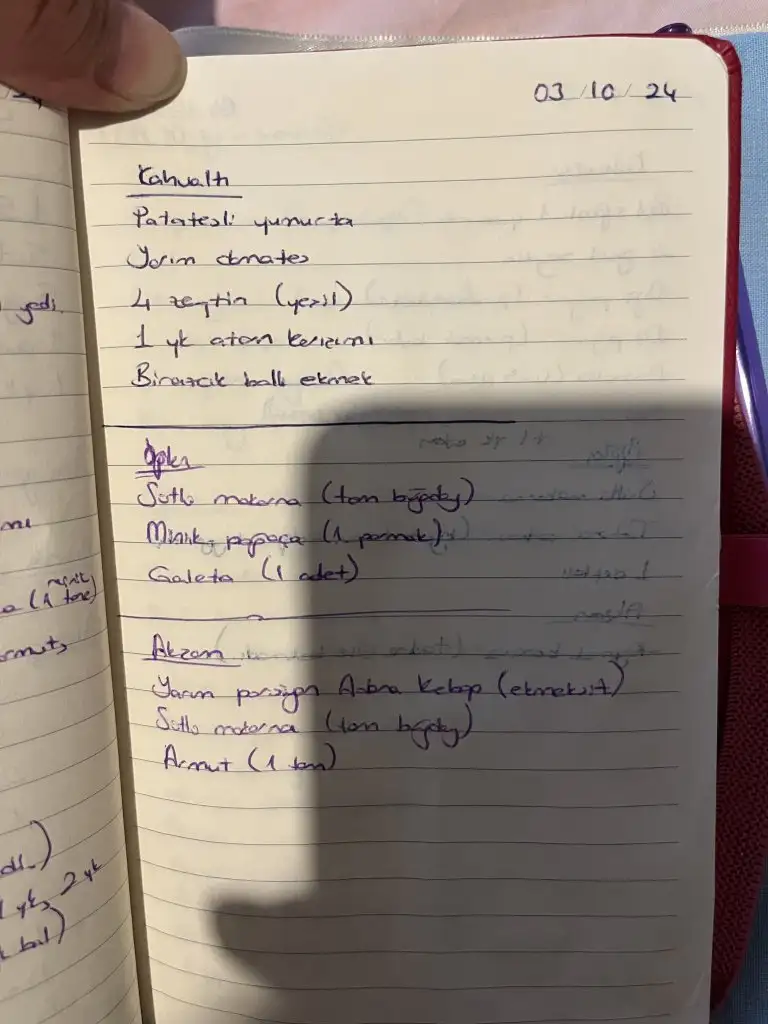 03/10/24
Kahvaltı
Patatesli yumurta
Yarım domates
4 zeytin (yeşil)
1 yk atom karışımı
Birazcık ballı ekmek
Öğlen
Sütlü makarna (tam buğday)
Minik poğaça (1 parmak)
Galeta (1 adet)
Akşam
Yarım porsiyon Adana Kebap (ekmeksiz)
Sütlü makarna (tam buğday)
Armut (1 tam)
yedi.
minik
(1 tane)
1 yk, 2 yk
bal)